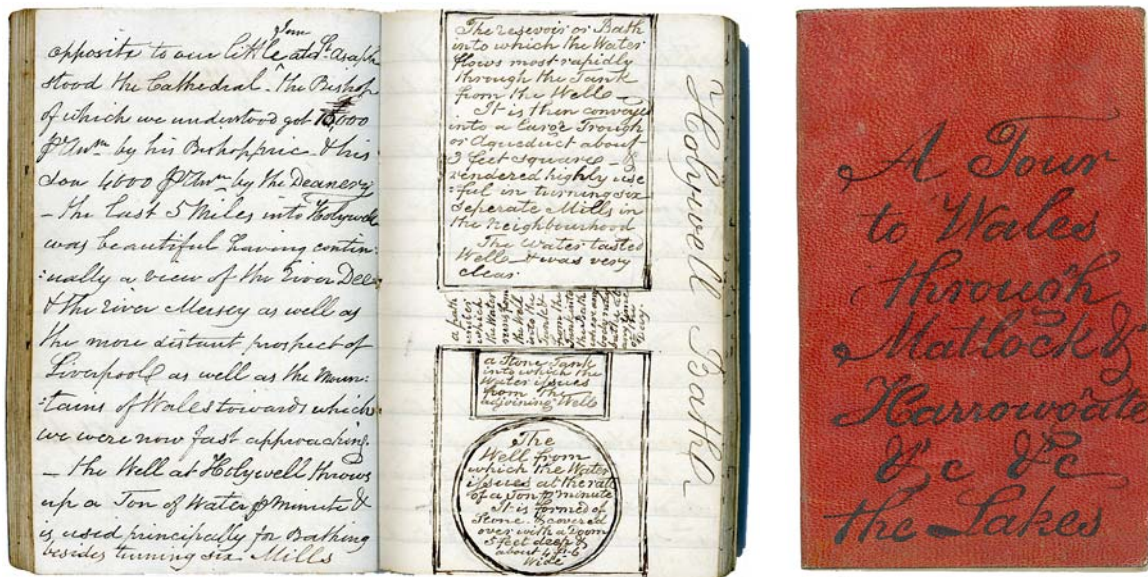 opposite to our little Inn at St. Asaph
stood the Cathedral - the Bishop
of which we understood got 15,000
⅌ Anm by his Bishoppric & his
Son 4000 ⅌ Anm by the Deanery
- the last 5 Miles into Holywell
was beautiful having contin:
:ually a view of the River Dee
& the river Mersey as well as
the more distant prospect of
Liverpool as well as the Moun:
:tains of Wales towards which
we were now fast approaching.
- the Well at Holywell throws
up a Ton of Water ⅌ Minute &
is used principally for Bathing
besides turning six Mills
The resevoir or Bath
into which the Water
flows most rapidly
through the Tank
from the Well -
It is then conveyed
into a Large Trough
or Aqueduct about
3 feet square - &
rendered highly use
:ful in turning six
Seperate Mills in
the Neighbourhood
The Water tasted
Well & was very
clear
a path
under
which
the Water
flows from
the Well
into the
Tank &
from the
Tank into
the Bath
a Stone Tank
into which the
Water issues
from the
adjoining Well
The
Well from
which the Water
issues at the rate
of a Ton ⅌ minute
It is formed of
Stone - & covered
over with a room
5 feet deep &
about 4 ft - 6
Wide
Holywell Baths
A Tour
to Wales
through
Matlock &
Harrowgate
&c &c
the Lakes